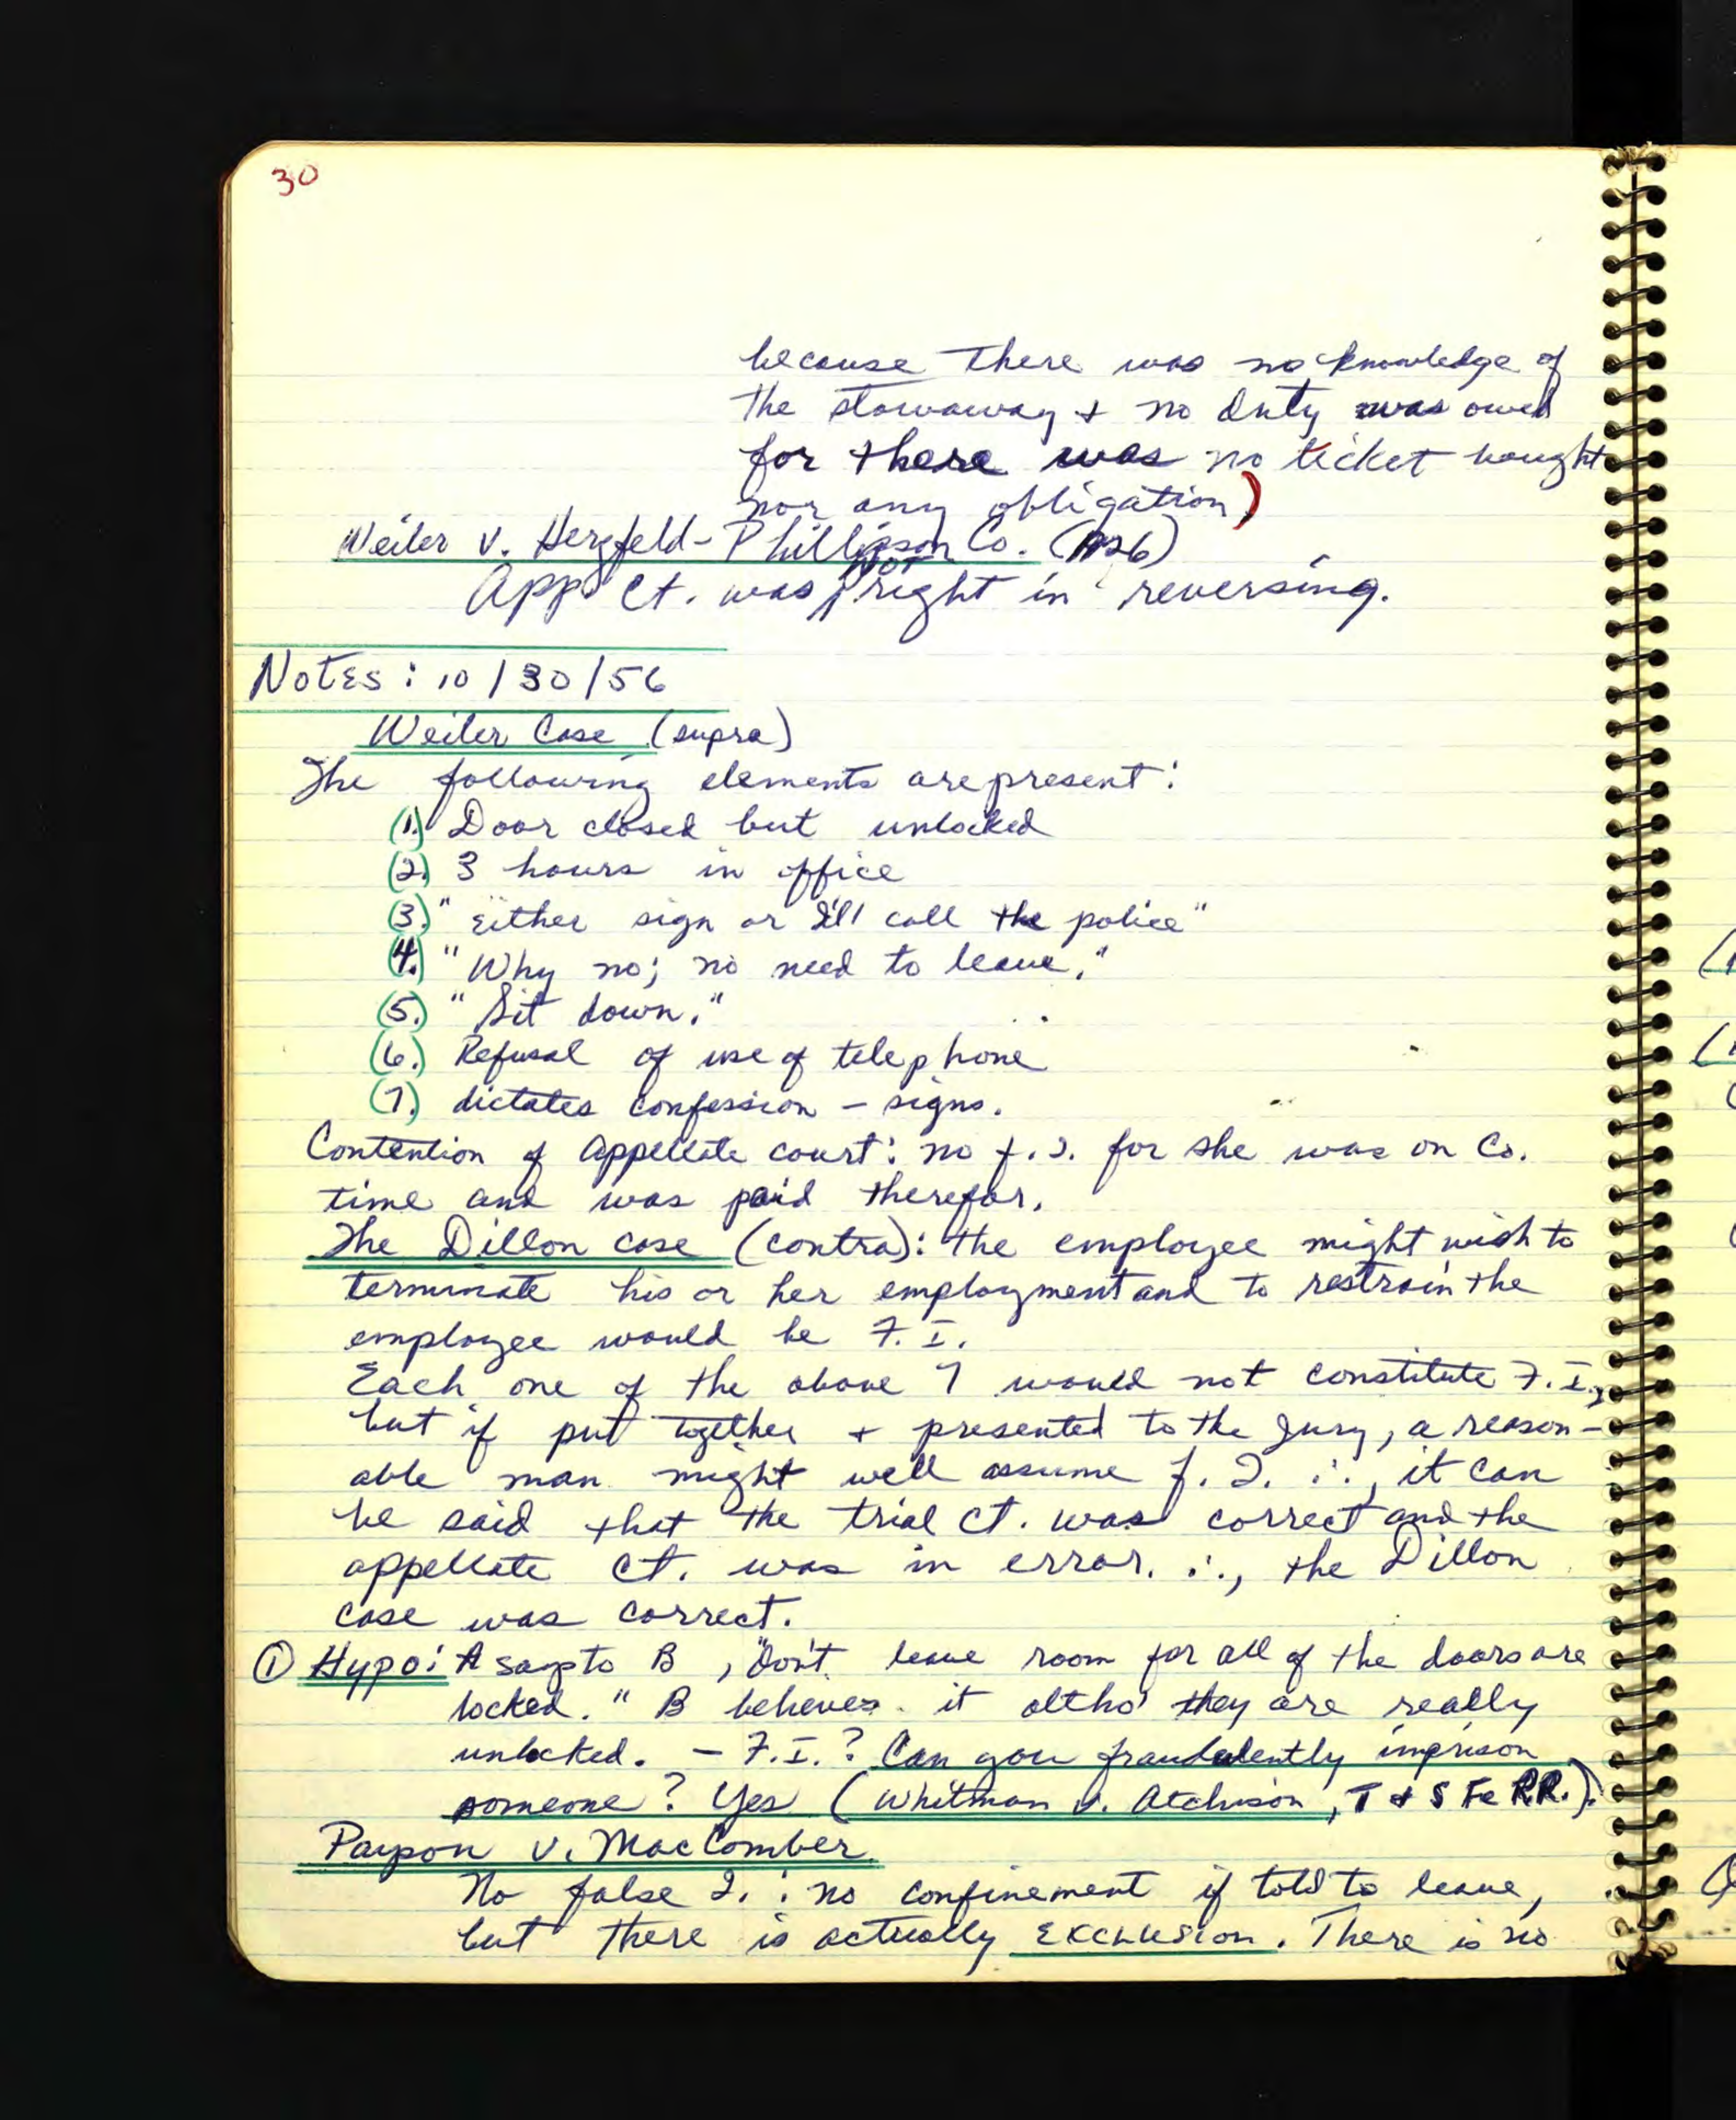 30
because there was no knowledge of
the stowaway + no duty was owed
for there was no ticket bought
nor any obligation)
Weiler v. Herzfeld-Phillipson Co. (P26)
Not
App. Ct. was right in reversing.
Notes: 10/30/56
Weiler Case (supra)
The following elements are present:
(1.) Door closed but unlocked
(2.) 3 hours in office
(3.) "Either sign or I'll call the police"
(4.) "Why no; no need to leave."
(5.) "Sit down."
(6.) Refusal of use of telephone
(7.) dictates confession - signs.
Contention of Appellate court: no f. I. for she was on Co.
time and was paid therefor.
The Dillon case (contra): the employee might wish to
terminate his or her employment and to restrain the
employee would be F. I.
Each one of the above 7 would not constitute F. I.,
but if put together + presented to the Jury, a reason-
able man might well assume f. I. ∴, it can
be said that the trial ct. was correct and the
appellate ct. was in error. ∴, the Dillon
case was correct.
① Hypo: A says to B, "Don't leave room for all of the doors are
locked." B believes it altho' they are really
unlocked. - F.I.? Can you fraudulently imprison
someone? Yes (Whitman v. Atchison, T & S Fe RR.).
Payson v. MacComber
No false I. : no confinement if told to leave,
but there is actually Exclusion. There is no